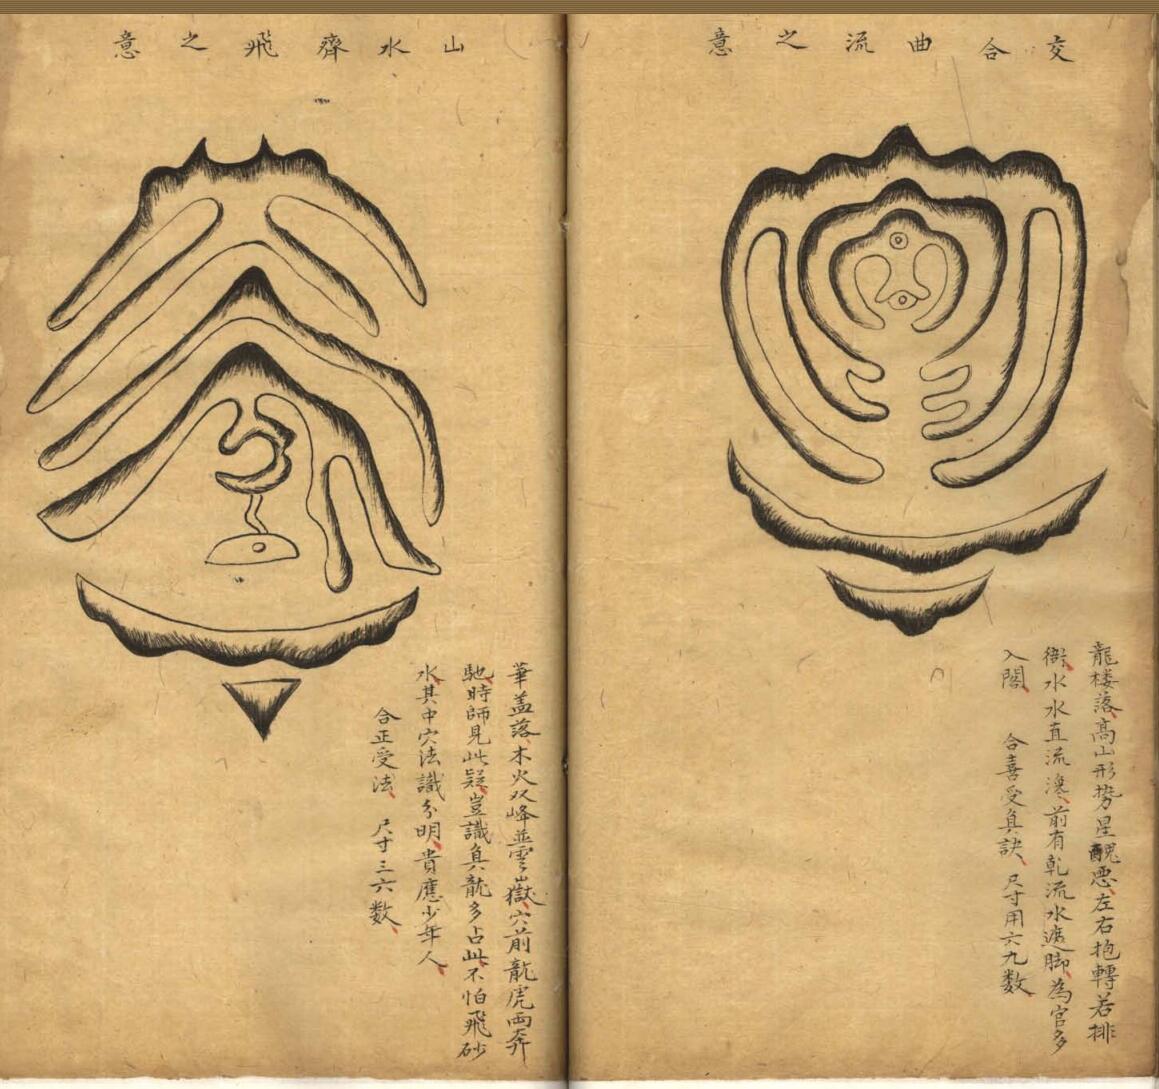 交合曲流之意
龍楼落高山形势星醜悪左右抱轉若排
衙水水直流瀼前有乾流水遮脚為官多
入閣　合喜受真訣　尺寸用六九数
山水齊飛之意
華盖落木火双峰並雲嶽穴前龍虎両奔
馳時師見此疑豈識真龍多占此不怕飛砂
水其中穴法識分明貴應少年人
合正受法　尺寸三六数